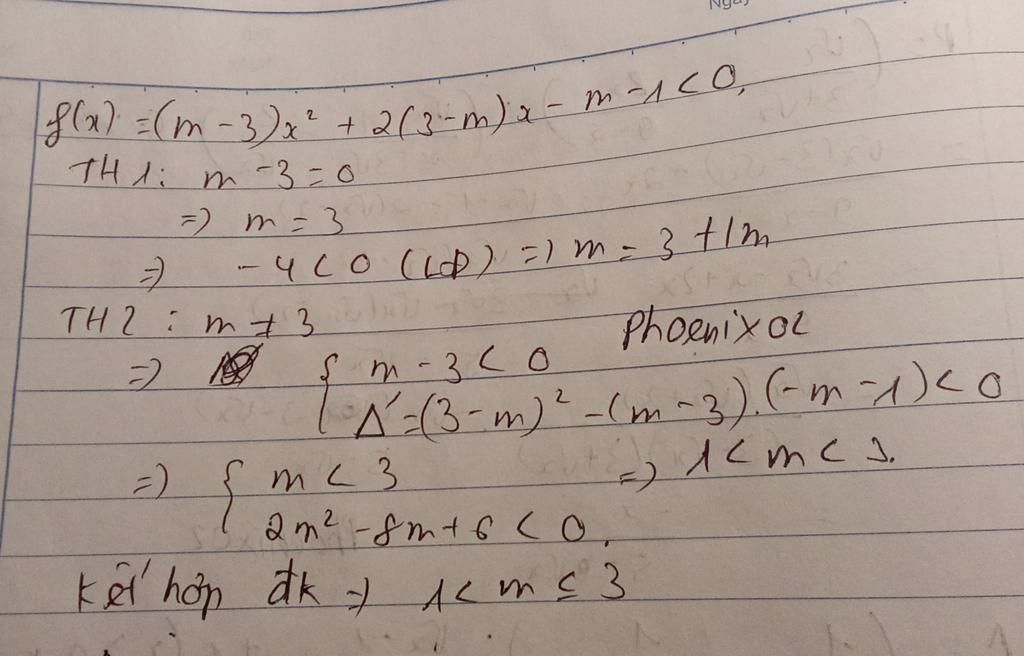 Ngày
f(x) = (m-3)x² + 2(3-m)x - m - 1 < 0.
TH1: m - 3 = 0
=> m = 3
=> - 4 < 0 (LĐ) => m = 3 t/m
TH2: m ≠ 3
Phoenix02
=> { m - 3 < 0
Δ' = (3-m)² - (m-3).(-m-1) < 0
=> { m < 3 => 1 < m < 3.
2m² - 8m + 6 < 0.
Kết hợp đk => 1 < m ≤ 3